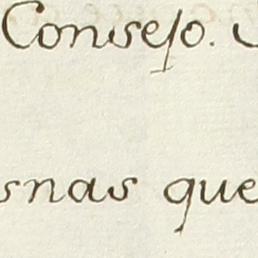 Consejo.
snas que